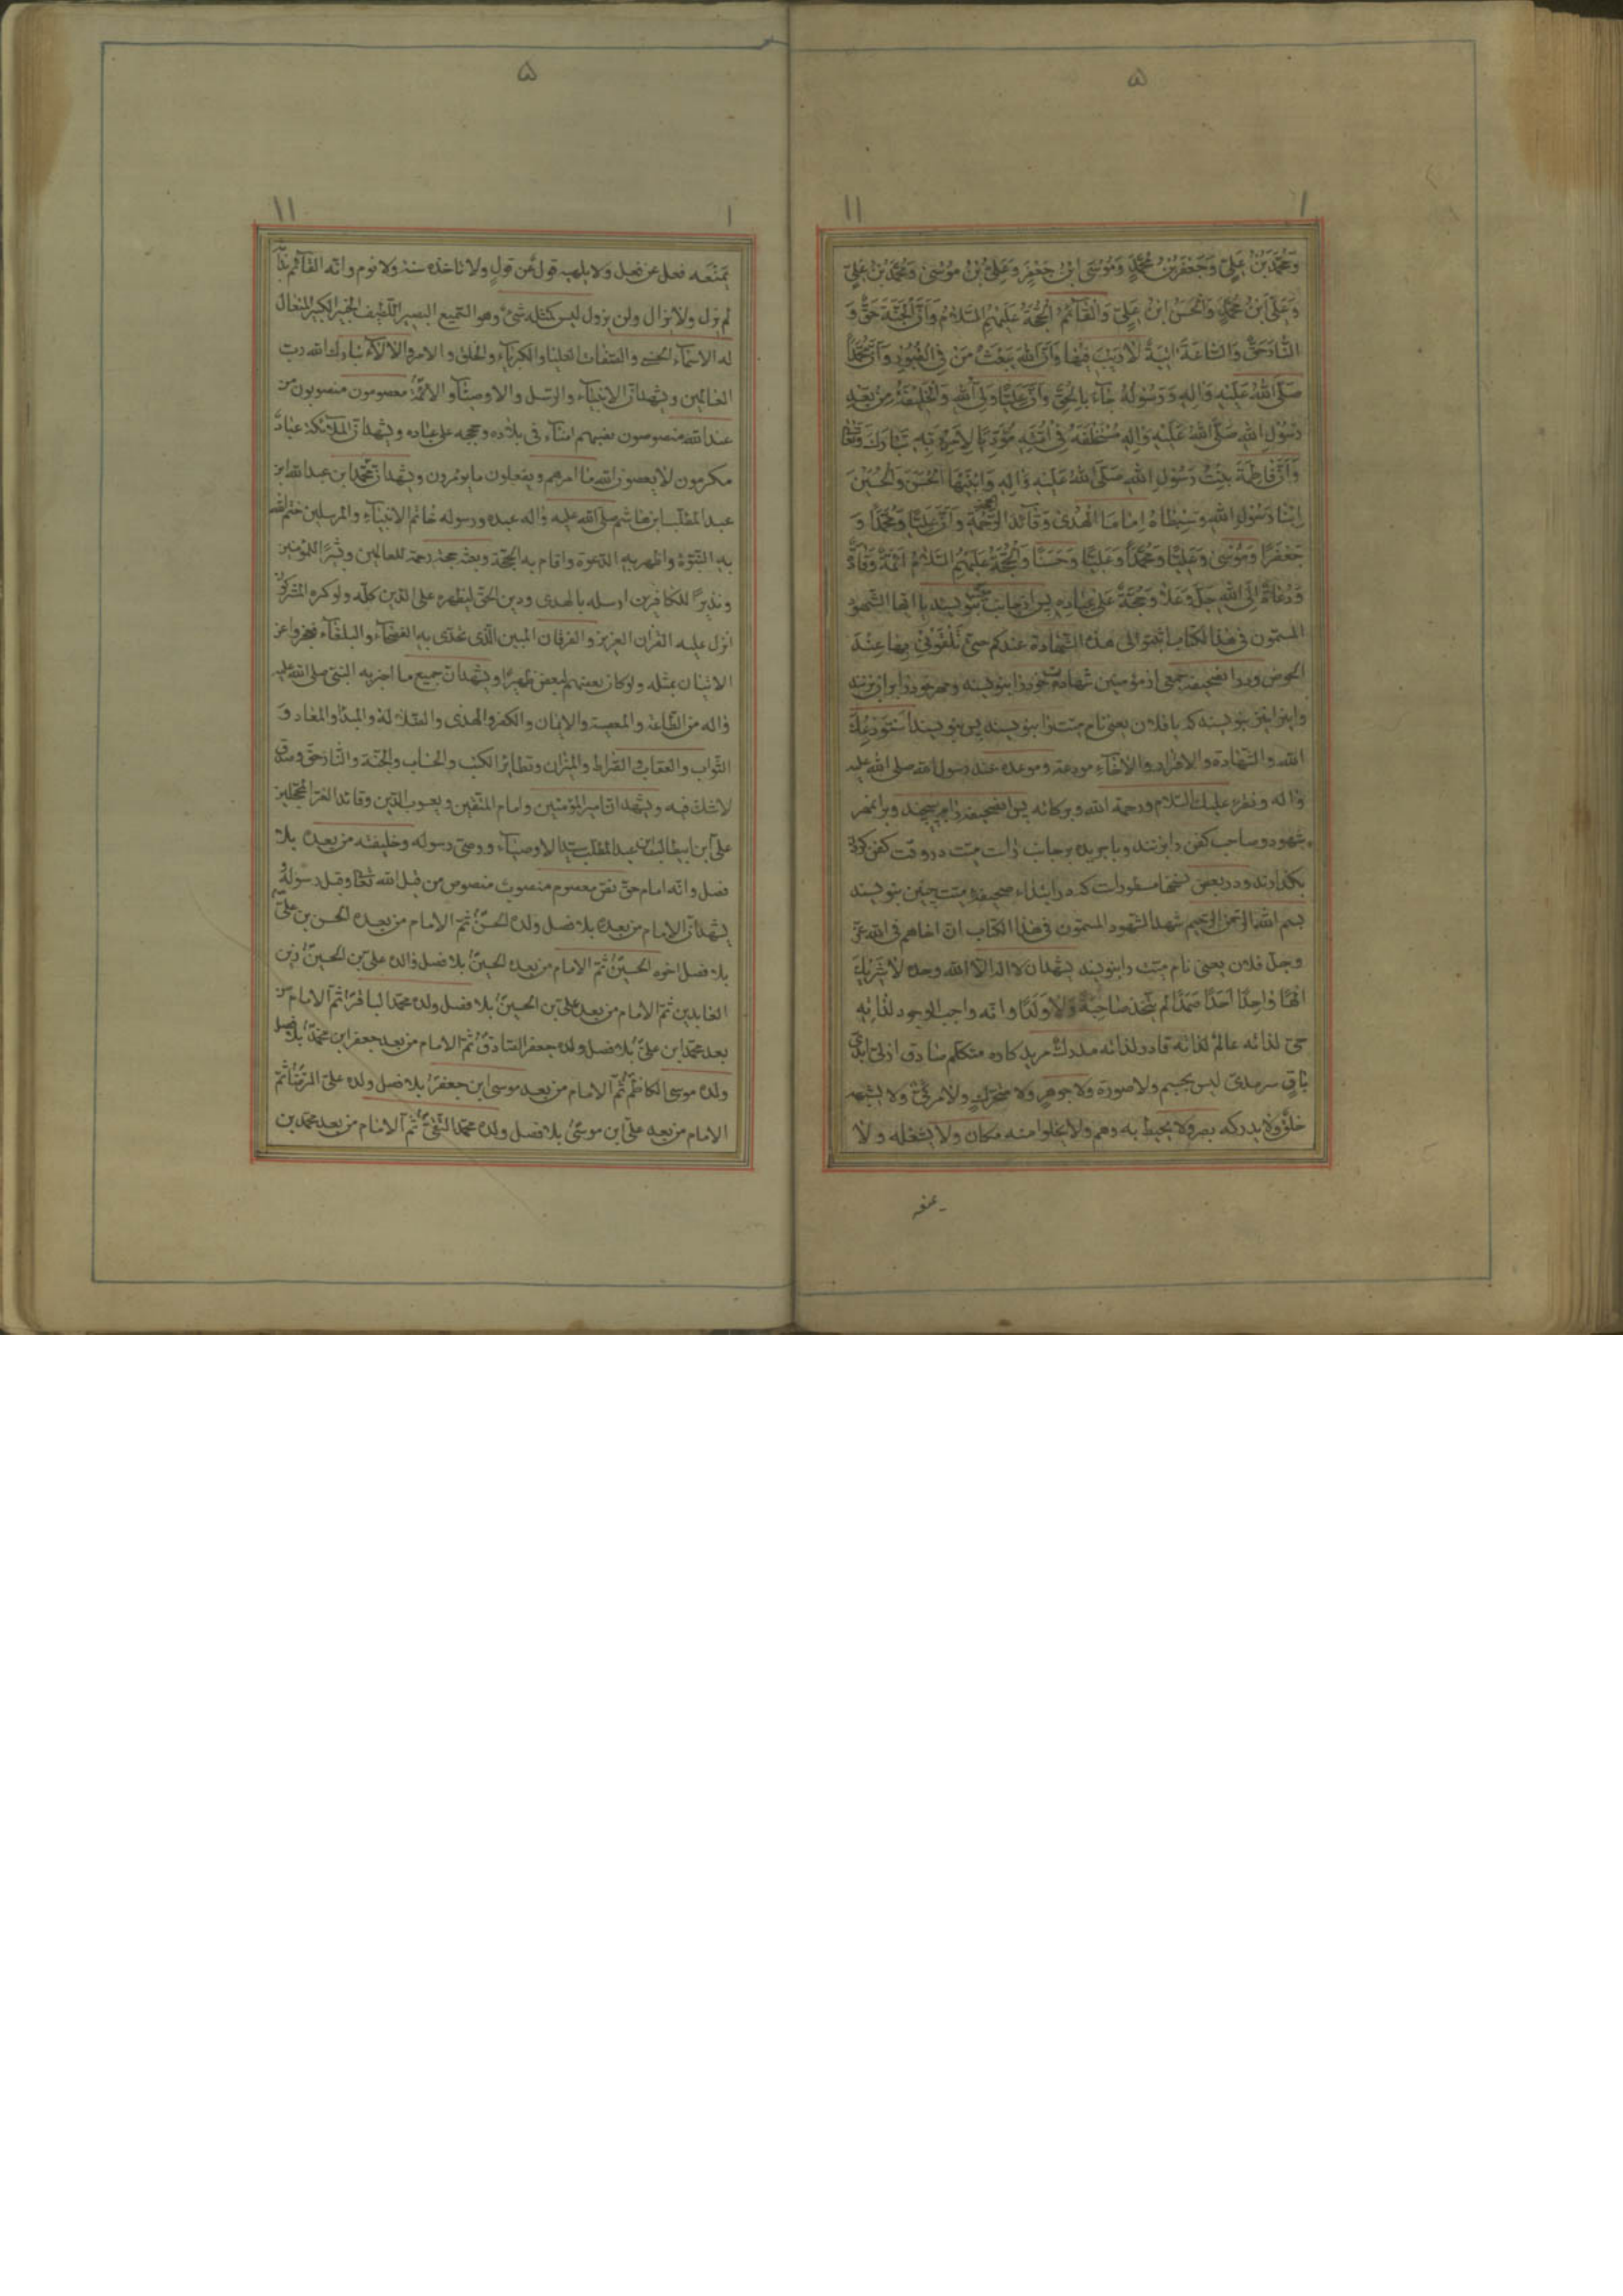 ۵
۱ ۱۱
وَمُحَمَّدَ بْنَ عَلِیٍّ وَجَعْفَرَ بْنَ مُحَمَّدٍ وَمُوسَی ابْنَ جَعْفَرٍ وَعَلِیَّ بْنَ مُوسَی وَمُحَمَّدَ بْنَ عَلِیٍّ
وَعَلِیَّ ابْنَ مُحَمَّدٍ وَالْحَسَنَ ابْنَ عَلِیٍّ وَالْقَآئِمَ الْحُجَّةَ عَلَیْهِمُ السَّلَامُ وَاَنَّ الْجَنَّةَ حَقٌّ وَ
النَّارَ حَقٌّ وَالسَّاعَةَ اٰتِیَةٌ لَا رَیْبَ فِیْهَا وَاَنَّ اللّٰهَ یَبْعَثُ مَنْ فِی الْقُبُوْرِ وَاَنَّ مُحَمَّدًا
صَلَّی اللّٰهُ عَلَیْهِ وَاٰلِهِ وَرَسُوْلُهُ جَآءَ بِالْحَقِّ وَاَنَّ عَلِیًّا وَلِیُّ اللّٰهِ وَالْخَلِیْفَةُ مِنْ بَعْدِ
رَسُوْلِ اللّٰهِ صَلَّی اللّٰهُ عَلَیْهِ وَاٰلِهِ مُسْتَخْلَفُهُ فِیْ اُمَّتِهِ مُؤَدِّیًا لِاَمْرِ رَبِّهِ تَبَارَكَ وَتَعَالٰی
وَاَنَّ فَاطِمَةَ بِنْتُ رَسُوْلِ اللّٰهِ صَلَّی اللّٰهُ عَلَیْهِ وَاٰلِهِ وَابْنَیْهَا الْحَسَنَ وَالْحُسَیْنَ
اِبْنَا رَسُوْلِ اللّٰهِ وَسِبْطَاهُ اِمَامَا الْهُدٰی وَقَآئِدَا الرَّحْمَةِ وَاَنَّ عَلِیًّا وَمُحَمَّدًا وَ
جَعْفَرًا وَمُوْسٰی وَعَلِیًّا وَمُحَمَّدًا وَعَلِیًّا وَحَسَنًا وَالْحُجَّةَ عَلَیْهِمُ السَّلَامُ اَئِمَّةٌ وَقَادَةٌ
وَدُعَاةٌ اِلَی اللّٰهِ جَلَّ وَعَلَا وَحُجَّةٌ عَلٰی عِبَادِهِ پس از جانب بنویسند یا ایها الشهود
المسمّون فی هذا الکتاب اثبتوا لی هذه الشهادة عندکم حتی تلقونی بها عند
الحوض و در انصحیفه جمعی از مؤمنین شهادت خود را بنویسند و مهر خود را بر ان بزنند
و اینرا نیز بنویسند که یا فلان یعنی نام میّت را بنویسند پس بنویسند اَسْتَوْدِعُكَ
الله والشهادة والاقرار والاخاء مودعة وموعده عند رسول الله صلی الله علیه
واله ونقرء علیك السلام ورحمة الله وبرکاته پس انصحیفه را می پیچند و بر انمهر
شهود و صاحب کفن را بزنند و با جریده بر جانب راست میّت در وقت کفن کردن
بگذارند و در بعض نسخها مسطورات که در ابتداء صحیفه میّت چنین بنویسند
بسم الله الرحمن الرحیم شهد الشهود المسمّون فی هذا الکتاب ان اخاهم فی الله عزّ
وجلّ فلان یعنی نام میّت را بنویسند یشهد ان لا اله الا الله وحده لا شریك
الهًا واحدًا احدًا صمدًا لم یتخذ صاحبةً ولا ولدًا وانّه واجب الوجود لذاته
حیّ لذاته عالم لذاته قادر لذاته مدرك مرید کاره متکلّم صادق ازلیّ ابدیّ
باقٍ سرمدیّ لیس بجسم ولا صورة ولا جوهر ولا متحرّك ولا مرئیّ ولا یشبهه
خلق ولا یدرکه بصر ولا یحیط به وهم ولا یخلوا منه مکان ولا یشغله ولا
یمنعه
۵
۱ ۱۱
یَمْنَعه فعل عن فعل ولا یلهیه قول عن قول ولا تاخذه سنة ولا نوم وانه القآئم
لم یزل ولا یزال ولن یزول لیس کمثله شیء وهو السّمیع البصیر اللّطیف الخبیر الکبیر المتعال
له الاسمآء الحسنی والصّفات العلیا والکبریآء والخلق والامر والآلآء تبارك الله ربّ
العالمین ویشهد انّ الانبیآء والرّسل والاوصیآء والائمّة معصومون منصوبون من
عند الله منصوصون نفسهم امنآء فی بلاده وحججه علی عباده ویشهد انّ الملآئکة عبادٌ
مکرمون لا یعصون الله ما امرهم ویفعلون ما یؤمرون ویشهد انّ محمّد ابن عبد الله ابن
عبد المطّلب ابن هاشم صلّی الله علیه واله عبده ورسوله خاتم الانبیآء والمرسلین ختم الله
به النّبوّة واظهر به الدّعوة واقام به الحجّة وبعثه حجة رحمة للعالمین وبشیرًا للمؤمنین
ونذیرًا للکافرین ارسله بالهدی ودین الحقّ لیظهره علی الدّین کلّه ولو کره المشرکون
انزل علیه القرآن العزیز والفرقان المبین الّذی تحدّی به الفصحآء والبلغآء فعجزوا عن
الاتیان بمثله ولو کان بعضهم لبعض ظهیرًا ویشهد انّ جمیع ما اخبر به النّبیّ صلی الله علیه
واله من الطّاعة والمعصیة والایمان والکفر والهدی والضّلالة والمبدأ والمعاد و
الثّواب والعقاب والصّراط والمیزان وتطایر الکتب والحساب والجنّة والنّار حقّ وصدق
لا شكّ فیه ویشهد انّ امیر المؤمنین وامام المتّقین ویعسوب الدّین وقائد الغرّ المحجّلین
علیّ ابن ابیطالب ابن عبد المطّلب سیّد الاوصیآء ووصیّ رسوله وخلیفته من بعده بلا
فصل وانّه امام حقّ نقیّ معصوم منصوب منصوص من قبل الله تعالی وقبل رسوله
یشهد انّ الامام من بعده بلا فصل ولده الحسنؑ ثمّ الامام من بعده الحسن بن علیّ
بلا فصل اخوه الحسینؑ ثمّ الامام من بعده الحسینؑ بلا فصل ولده علیّ بن الحسینؑ زین
العابدین ثمّ الامام من بعد علیّ بن الحسینؑ بلا فصل ولده محمّد الباقرؑ ثمّ الامام من
بعد محمّد ابن علیّؑ بلا فصل ولده جعفر الصّادقؑ ثمّ الامام من بعد جعفر ابن محمّدؑ بلا فصل
ولده موسی الکاظمؑ ثمّ الامام من بعد موسی ابن جعفرؑ بلا فصل ولده علیّ الرّضاؑ ثمّ
الامام من بعد علیّ ابن موسیؑ بلا فصل ولده محمّد التّقیؑ ثمّ الامام من بعد محمّد بن